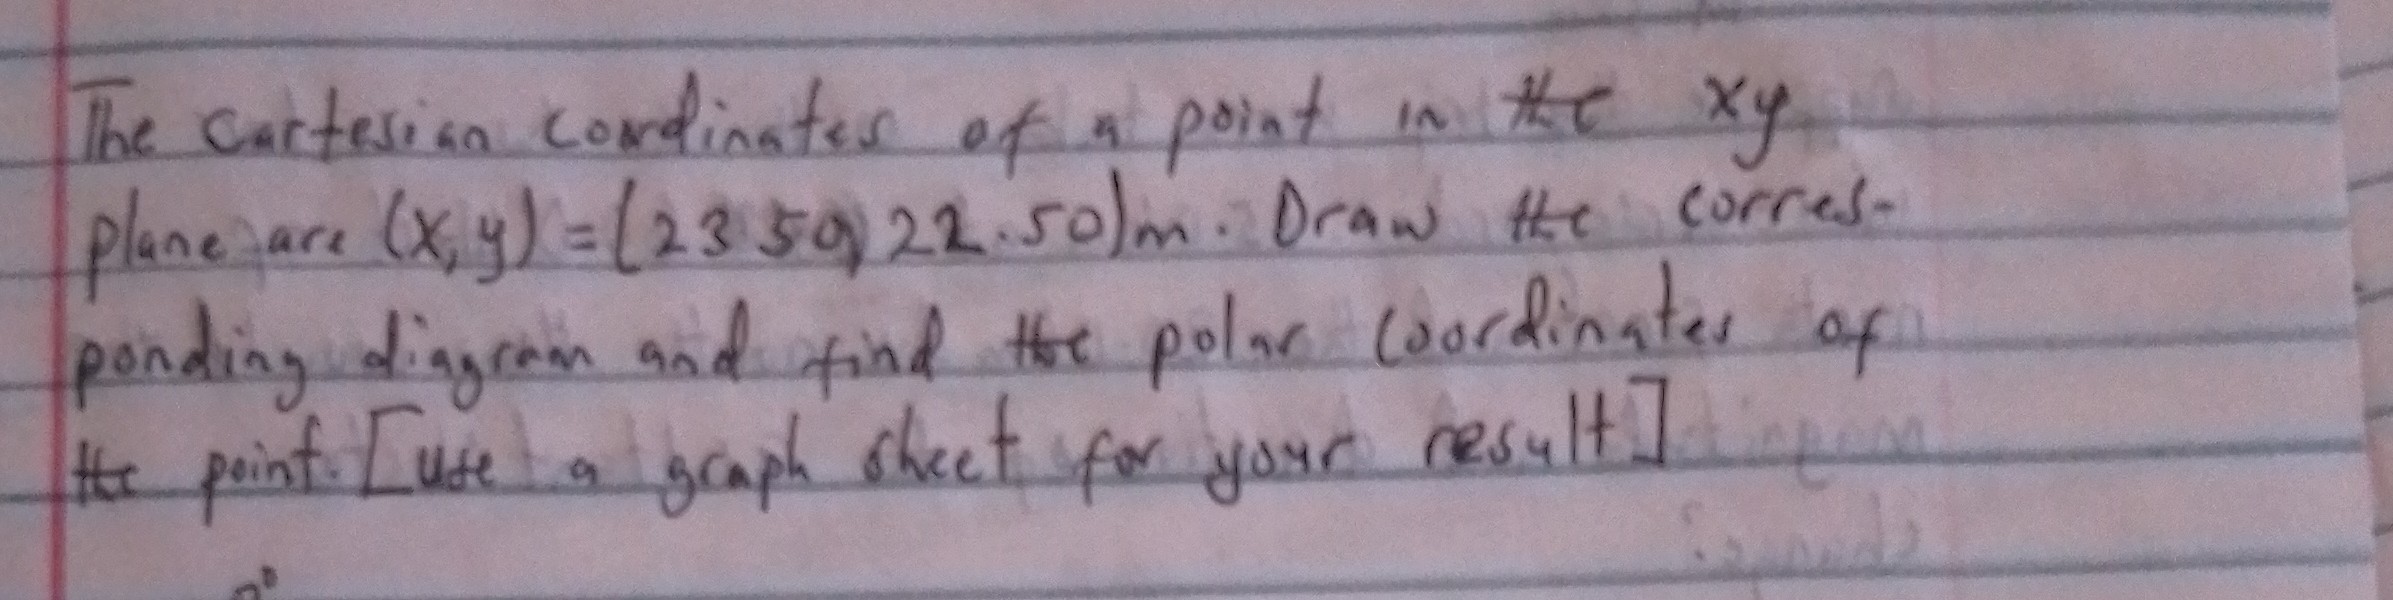 The Cartesian coordinates of a point in the xy
plane are (x, y) = (23 50, 22.50)m. Draw the corres-
ponding diagram and find the polar coordinates of
the point. [use a graph sheet for your result]